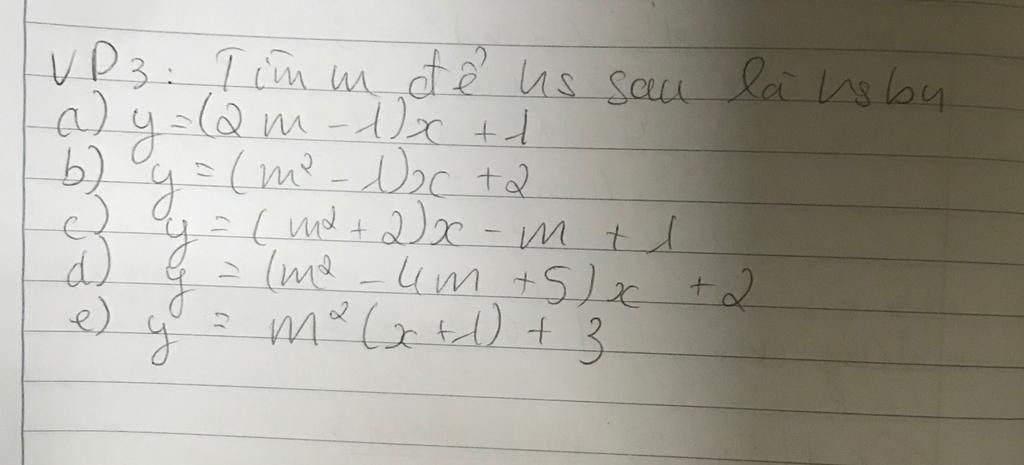 VD3: Tìm m để hs sau là hsbn
a) y=(2m-1)x+1
b) y=(m²-1)x+2
c) y=(m²+2)x-m+1
d) y=(m²-4m+5)x+2
e) y=m²(x+1)+3